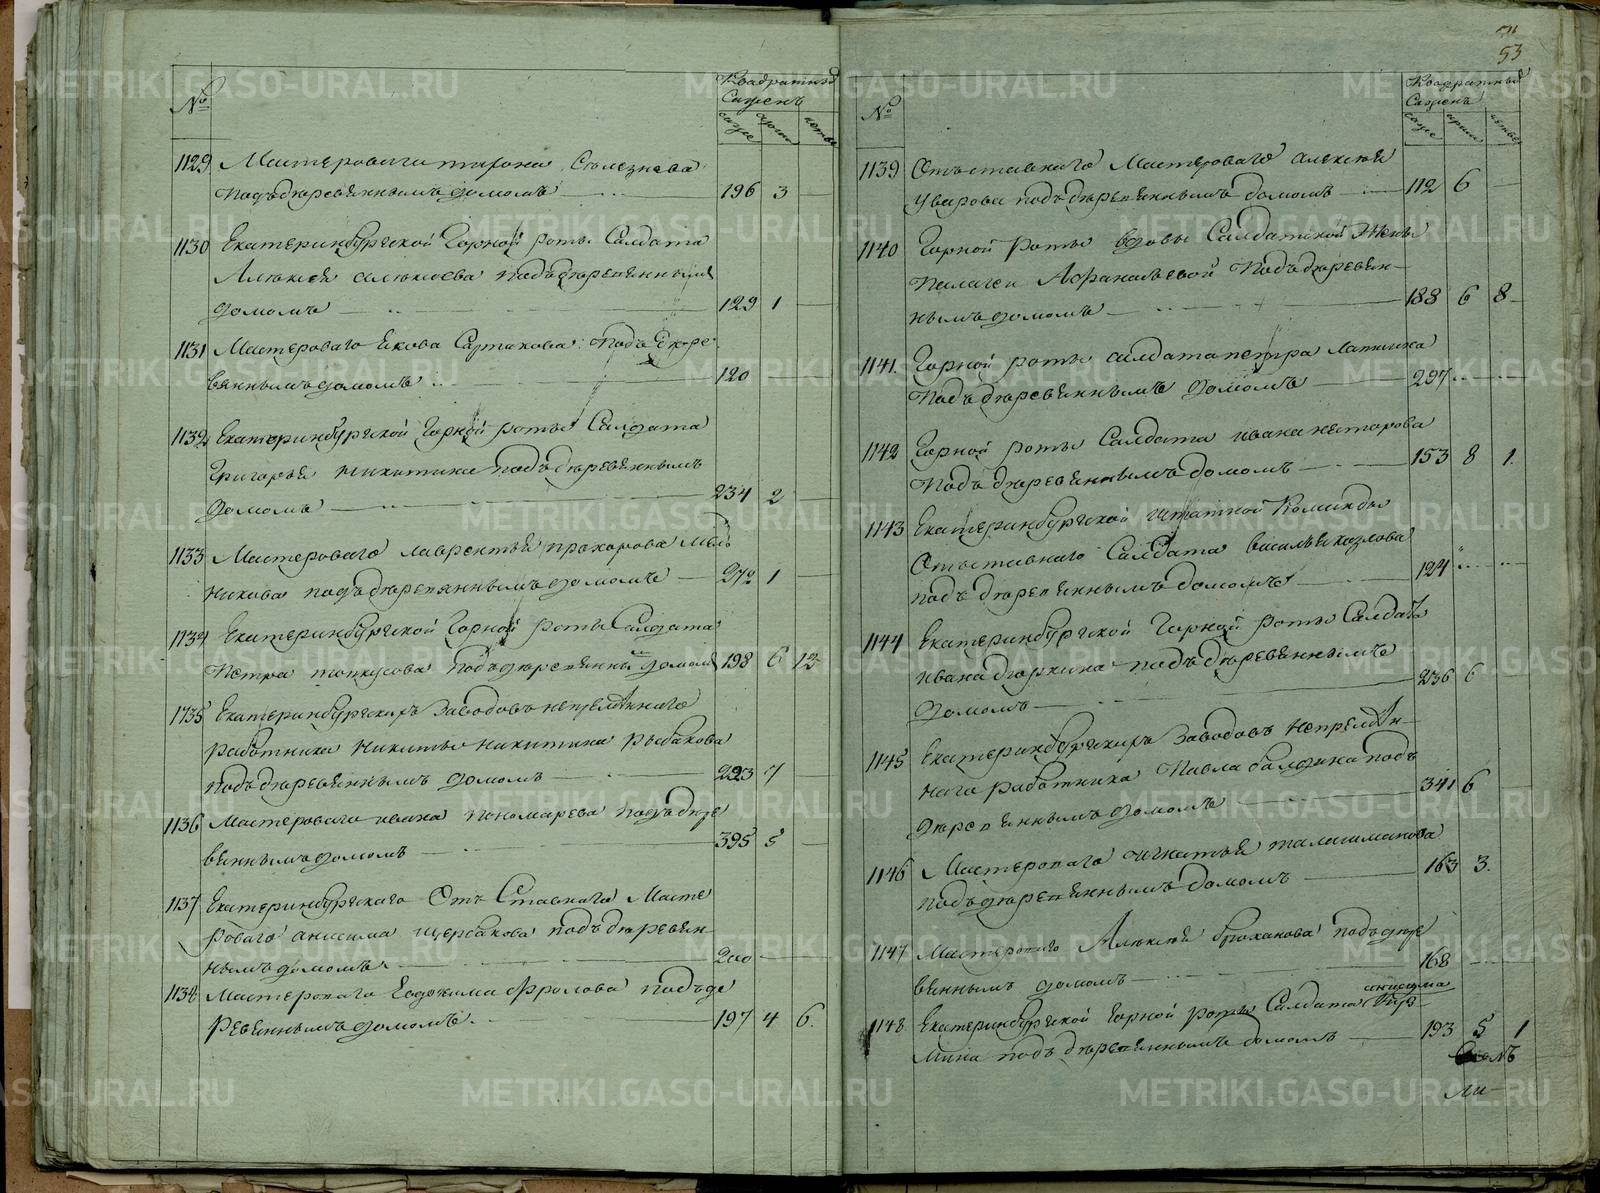 №
Квадратныя
Сажень
саже арши четве
1129 Мастероваго тихона Селезнева
подъ деревяннымъ домомъ 196 3 —
1130 Екатеринбургской Горной роты Салдата
Алексея алексеева подъ деревяннымъ
домомъ 129 1 —
1131 Мастероваго якова Сартакова подъ дере
вяннымъ домомъ 120
1132 Екатеринбургской Горной роты Салдата
Григорья никитина подъ деревяннымъ
домомъ 234 2 —
1133 Мастероваго лаврентья прохорова мель
никова подъ деревяннымъ домомъ 272 1 —
1134 Екатеринбургской Горной роты Салдата
Петра подъ деревянным домомъ 198 6 12
1135 Екатеринбургскихъ Заводовъ непременнаго
работника никиты никитина рыбакова
подъ деревяннымъ домомъ 223 7 —
1136 Мастероваго ивана пономарева подъ дере
вяннымъ домомъ 395 5 —
1137 Екатеринбургскаго Отъ Ставнаго Масте
роваго анисима щербакова подъ деревян
нымъ домомъ 200 —
1138 Мастероваго Евдокима Фролова подъ де
ревяннымъ домомъ 197 4 6.
53
№
Квадратныя
Сажень
саже арши четве
1139 Отъставнаго Мастероваго алексея
уварова подъ деревяннымъ домомъ 112 6 —
1140 Горной роты вдовы Салдатской Жены
Пелагеи Афанасьевой подъ деревян
нымъ домомъ 188 6 8
1141 Горной роты салдата петра лапшина
подъ деревяннымъ домомъ 297
1142 Горной роты Салдата ивана нестерова
подъ деревяннымъ домомъ 153 8 1.
1143 Екатеринбургской штатной Команды
Отъставнаго Салдата василья козлова
подъ деревяннымъ домомъ 124
1144 Екатеринбургской Горной роты Салдата
ивана подъ деревяннымъ
домомъ 236 6
1145 Екатеринбургскихъ Заводовъ непремен
наго работника Павла балдина подъ
деревяннымъ домомъ 341 6
1146 Мастероваго игнатья талашманова
подъ деревяннымъ домомъ 163 3.
1147 Мастероваго Алексея брюханова подъ дере
вяннымъ домомъ 168
1148 Екатеринбургской Горной роты Салдата анисима
подъ деревяннымъ домомъ 193 5 1
METRIKI.GASO-URAL.RU